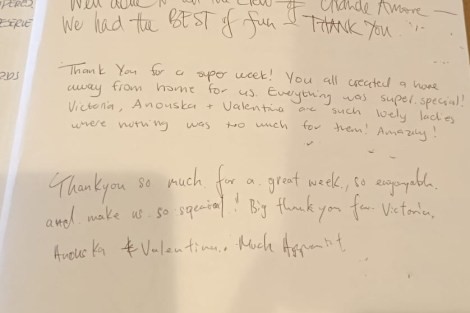 Well done to all the Crew of Grande Amore
We had the BEST of fun - THANK YOU
Thank You for a super week! You all created a home
away from home for us. Everything was super special!
Victoria, Anouska + Valentina are such lovely ladies
where nothing was too much for them! Amazing!
Thankyou so much for a great week, so enjoyable
and make us so special! Big thank you for Victoria,
Anouska & Valentina. Much